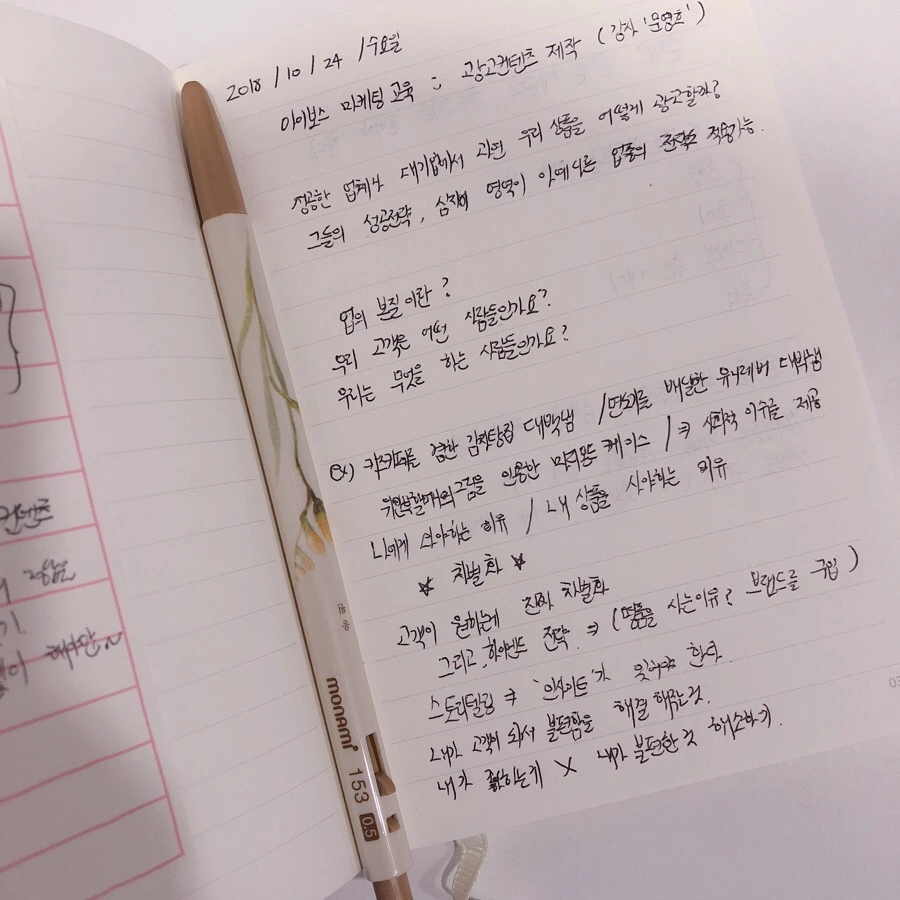 2018 / 10 / 24 / 수요일
아이보스 마케팅 교육 : 광고컨텐츠 제작 (강사 '문영호')
성공한 업체나 대기업에서 과연 우리 상품을 어떻게 광고할까?
그들의 성공전략, 심지어 영역이 아예 다른 업종의 전략도 적용가능.
업의 본질이란?
우리 고객은 어떤 사람들인가요?
우리는 무엇을 하는 사람들인가요?
ex) 키즈카페를 겸한 감자탕집 대박냄 / 면허를 배달한 유니레버 대박냄
위안부할머니의 그림을 인용한 마리몬드 케이스 / → 사회적 이슈를 제공
너에게 사야하는 이유 / 내 상품을 사야하는 이유
☆ 차별화 ☆
고객이 원하는게 진짜 차별화
그리고, 하이엔드 전략. → (명품을 사는이유? 브랜드를 구입)
스토리텔링 → '인사이트'가 있어야 한다.
내가 고객이 되서 불편함을 해결 해주는 것.
내가 잘하는게 X 내가 불편한것 해소하기.
컨텐츠
해야만~
monami 153 0.5